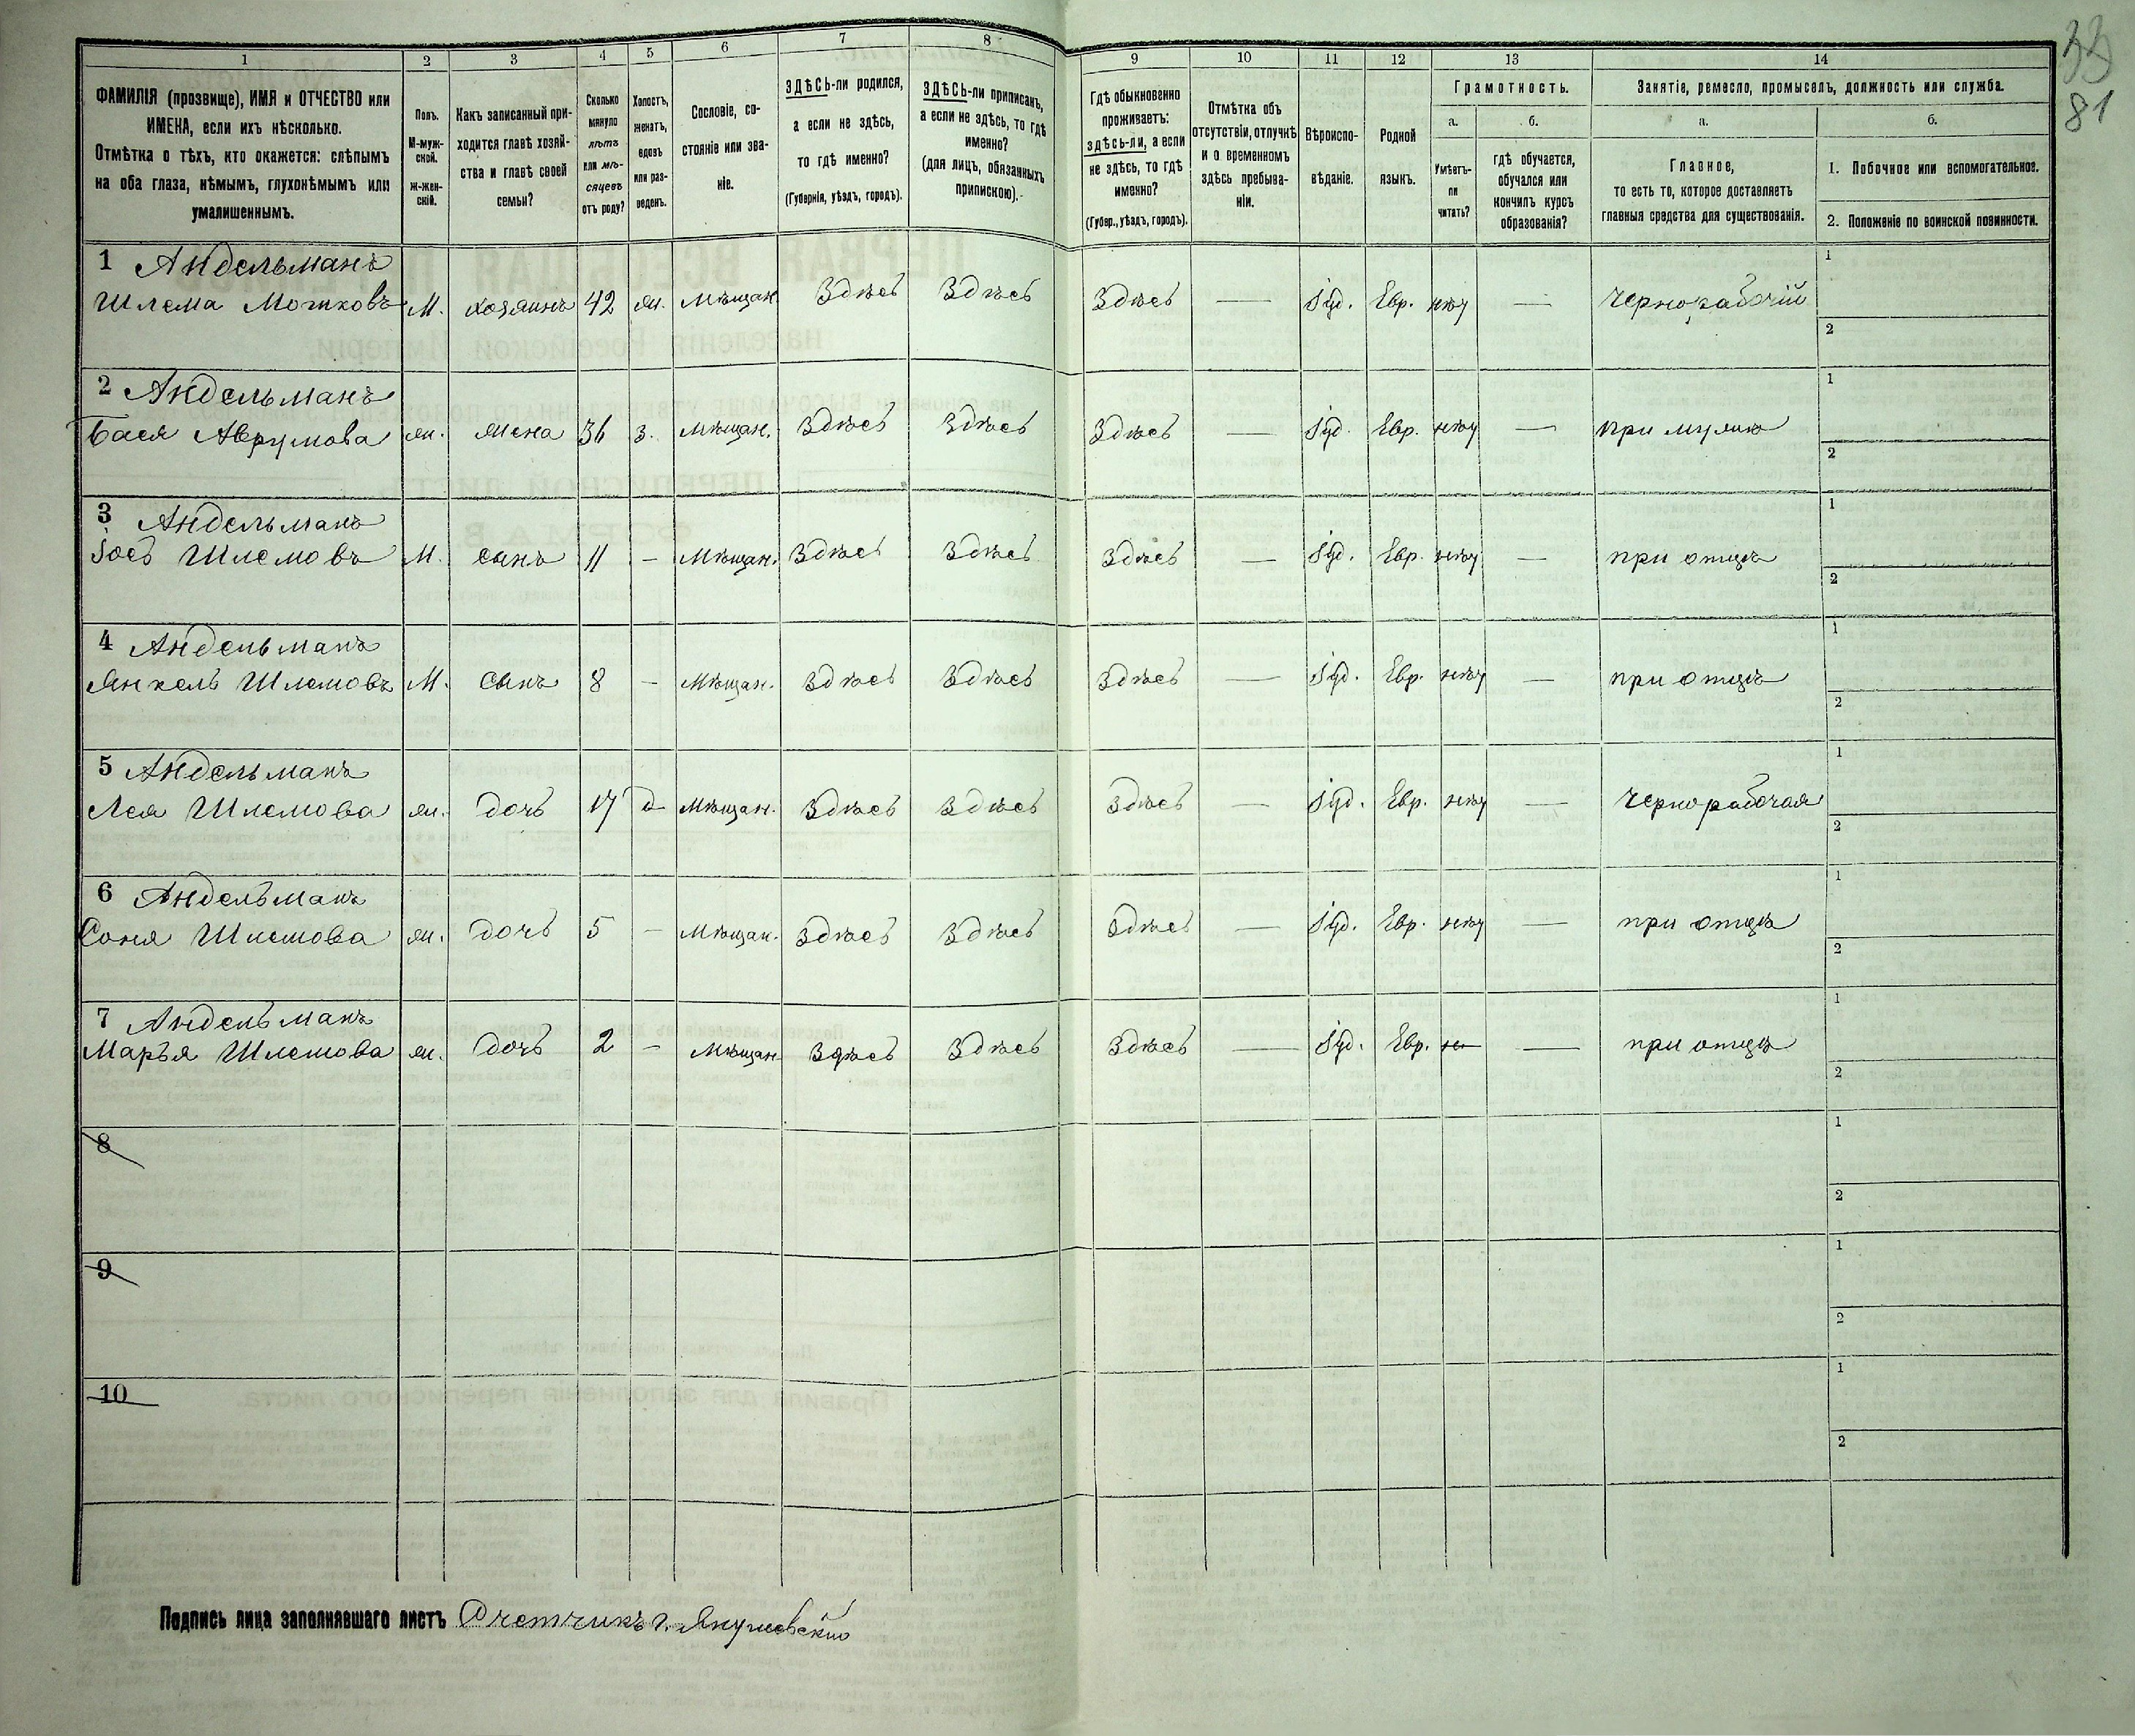 33
81
1 2 3 4 5 6 7 8 9 10 11 12 13 14
ФАМИЛІЯ (прозвище), ИМЯ и ОТЧЕСТВО или
ИМЕНА, если ихъ нѣсколько.
Отмѣтка о тѣхъ, кто окажется: слѣпымъ
на оба глаза, нѣмымъ, глухонѣмымъ или
умалишеннымъ.
Полъ.
М-муж-
ской.
ж-жен-
скій.
Какъ записанный при-
ходится главѣ хозяй-
ства и главѣ своей
семьи?
Сколько
минуло
лѣтъ
или мѣ-
сяцевъ
отъ роду?
Холостъ,
женатъ,
вдовъ
или раз-
веденъ.
Сословіе, со-
стояніе или зва-
ніе.
ЗДѢСЬ-ли родился,
а если не здѣсь,
то гдѣ именно?
(Губернія, уѣздъ, городъ).
ЗДѢСЬ-ли приписанъ,
а если не здѣсь, то гдѣ
именно?
(для лицъ, обязанныхъ
припискою).
Гдѣ обыкновенно
проживаетъ:
здѣсь-ли, а если
не здѣсь, то гдѣ
именно?
(Губер., уѣздъ, городъ).
Отмѣтка объ
отсутствіи, отлучкѣ
и о временномъ
здѣсь пребыва-
ніи.
Вѣроиспо-
вѣданіе.
Родной
языкъ.
Грамотность.
а.
Умѣетъ-
ли
читать?
б.
гдѣ обучается,
обучался или
кончилъ курсъ
образованія?
Занятіе, ремесло, промыселъ, должность или служба.
а.
Главное,
то есть то, которое доставляетъ
главныя средства для существованія.
б.
1. Побочное или вспомогательное.
2. Положеніе по воинской повинности.
1 Андельманъ 1
Шлема Мошковъ М. хозяинъ 42 ж. Мѣщан. Здѣсь Здѣсь Здѣсь — Іуд. Евр. — чернорабочій
2
2 Андельманъ 1
Бася Аврумова ж. жена 36 з. Мѣщан. Здѣсь Здѣсь Здѣсь — Іуд. Евр. — при мужѣ
2
3 Андельманъ 1
Іосъ Шлемовъ М. сынъ 11 — Мѣщан. Здѣсь Здѣсь Здѣсь — Іуд. Евр. — при отцѣ
2
4 Андельманъ 1
Янкель Шлемовъ М. сынъ 8 — Мѣщан. Здѣсь Здѣсь Здѣсь — Іуд. Евр. — при отцѣ
2
5 Андельманъ 1
Лея Шлемова ж. дочь 17 д Мѣщан. Здѣсь Здѣсь Здѣсь — Іуд. Евр. — Чернорабочая
2
6 Андельманъ 1
Соня Шлемова ж. дочь 5 — Мѣщан. Здѣсь Здѣсь Здѣсь — Іуд. Евр. — при отцѣ
2
7 Андельманъ 1
Марья Шлемова ж. дочь 2 — Мѣщан. Здѣсь Здѣсь Здѣсь — Іуд. Евр. — при отцѣ
2
8 1
2
9 1
2
10 1
2
Подпись лица заполнявшаго листъ Счетчикъ г. Янушевскій